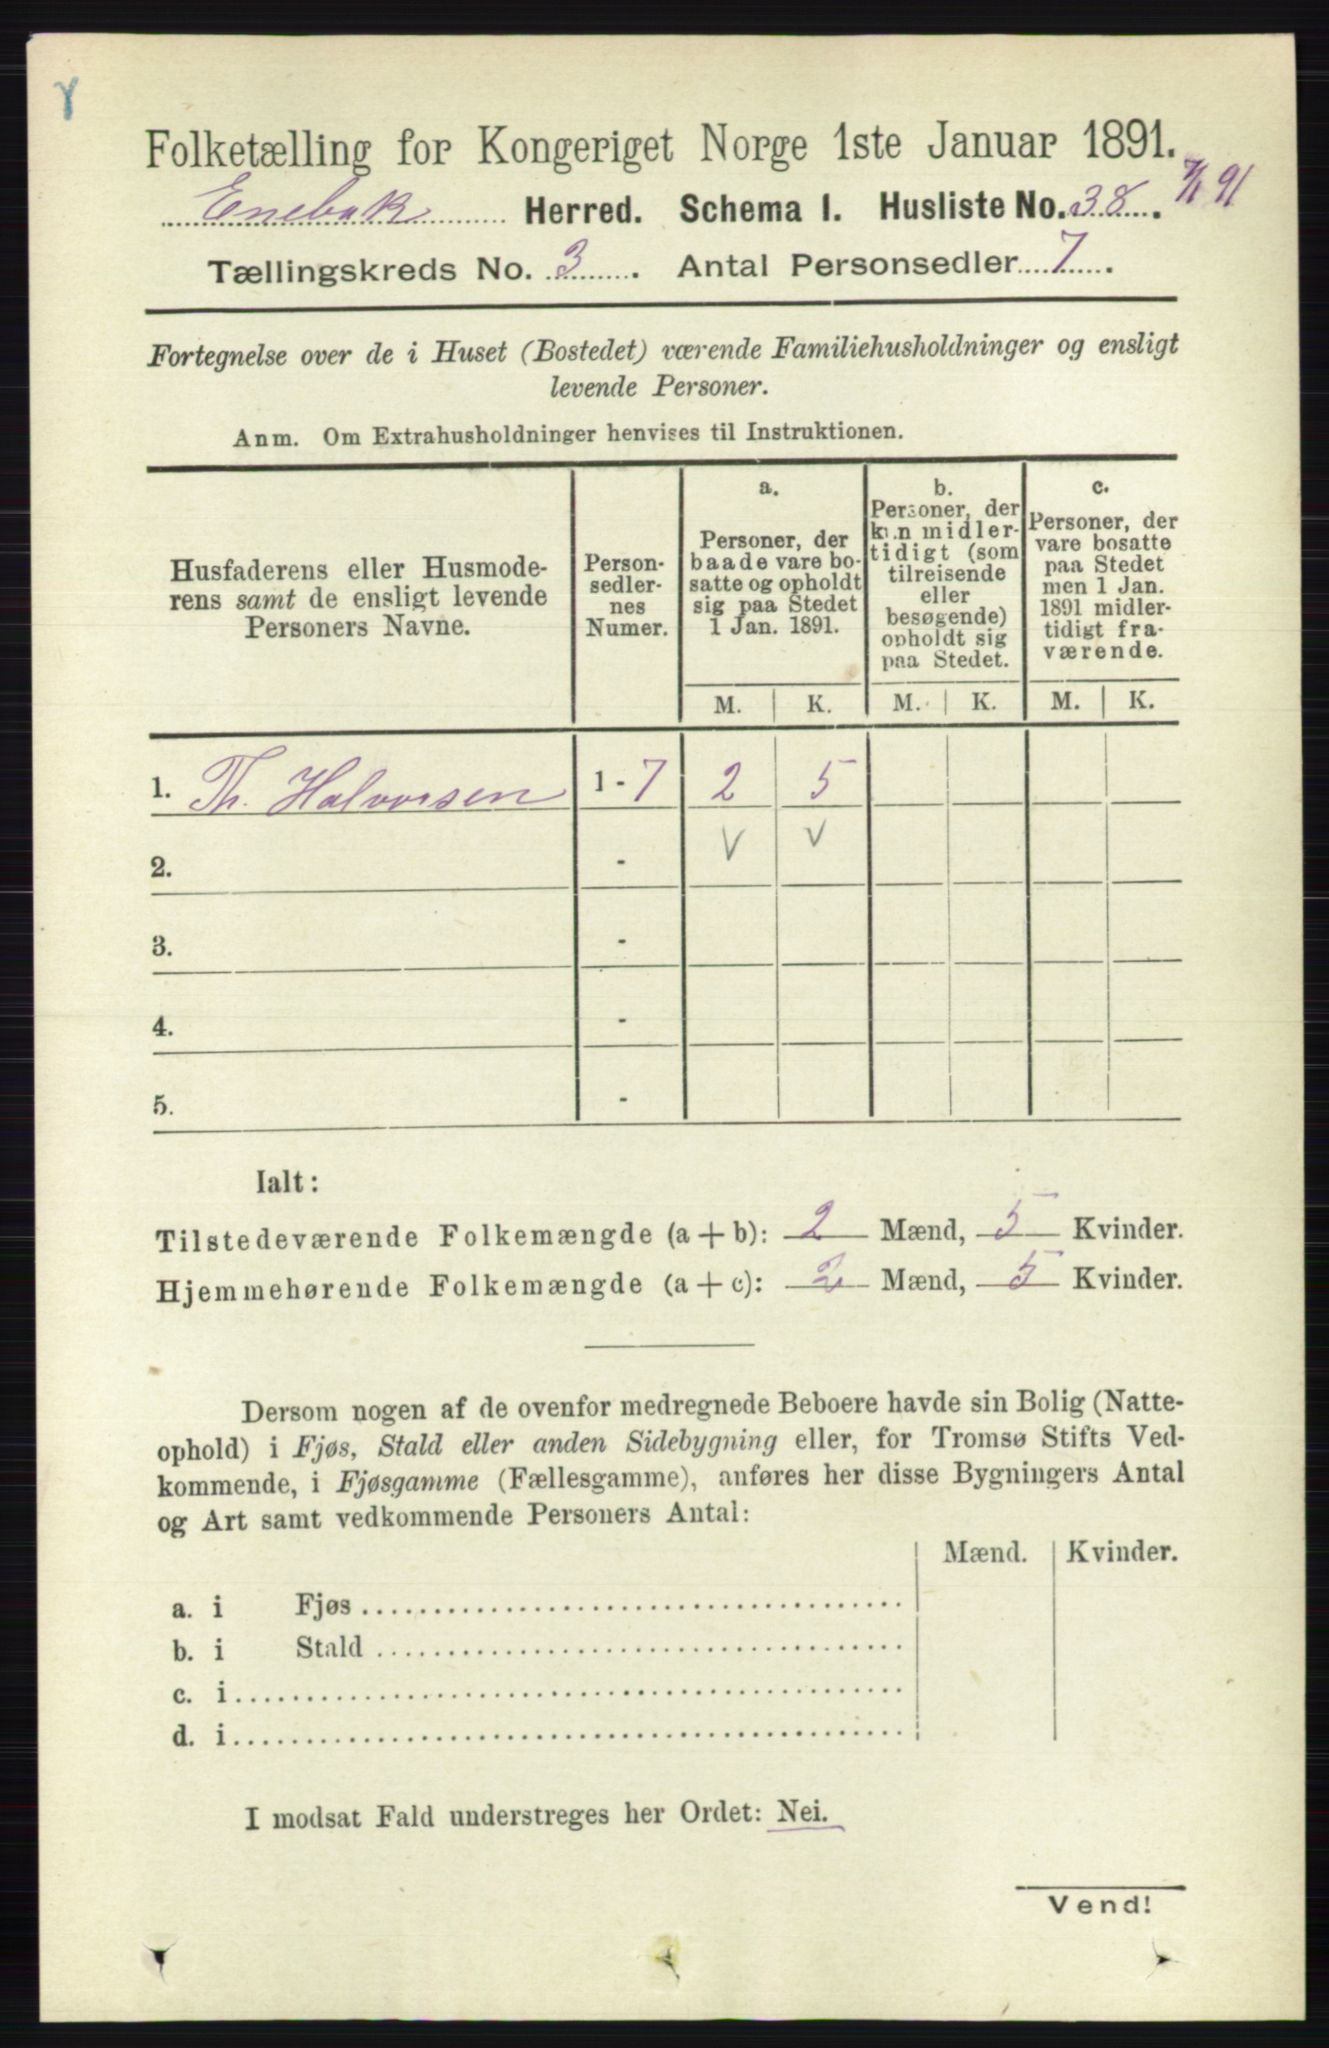 Folketælling for Kongeriget Norge 1ste Januar 1891.
Enebak Herred. Schema I. Husliste No. 38.
Tællingskreds No. 3. Antal Personsedler 7.
Fortegnelse over de i Huset (Bostedet) værende Familiehusholdninger og ensligt
levende Personer.
Anm. Om Extrahusholdninger henvises til Instruktionen.
Husfaderens eller Husmode-
rens samt de ensligt levende
Personers Navne.
Person-
sedler-
nes
Numer.
a.
Personer, der
baade vare bo-
satte og opholdt
sig paa Stedet
1 Jan. 1891.
b.
Personer, der
kun midler-
tidigt (som
tilreisende
eller
besøgende)
opholdt sig
paa Stedet.
c.
Personer, der
vare bosatte
paa Stedet
men 1 Jan.
1891 midler-
tidigt fra-
værende.
M. K. M. K. M. K.
1. Th. Halvorsen 1 - 7 2 5
2. - V V
3. -
4. -
5. -
Ialt:
Tilstedeværende Folkemængde (a + b): 2 Mænd, 5 Kvinder.
Hjemmehørende Folkemængde (a + c): 2 Mænd, 5 Kvinder.
Dersom nogen af de ovenfor medregnede Beboere havde sin Bolig (Natte-
ophold) i Fjøs, Stald eller anden Sidebygning eller, for Tromsø Stifts Ved-
kommende, i Fjøsgamme (Fællesgamme), anføres her disse Bygningers Antal
og Art samt vedkommende Personers Antal:
Mænd. Kvinder.
a. i Fjøs
b. i Stald
c. i
d. i
I modsat Fald understreges her Ordet: Nei.
Vend!